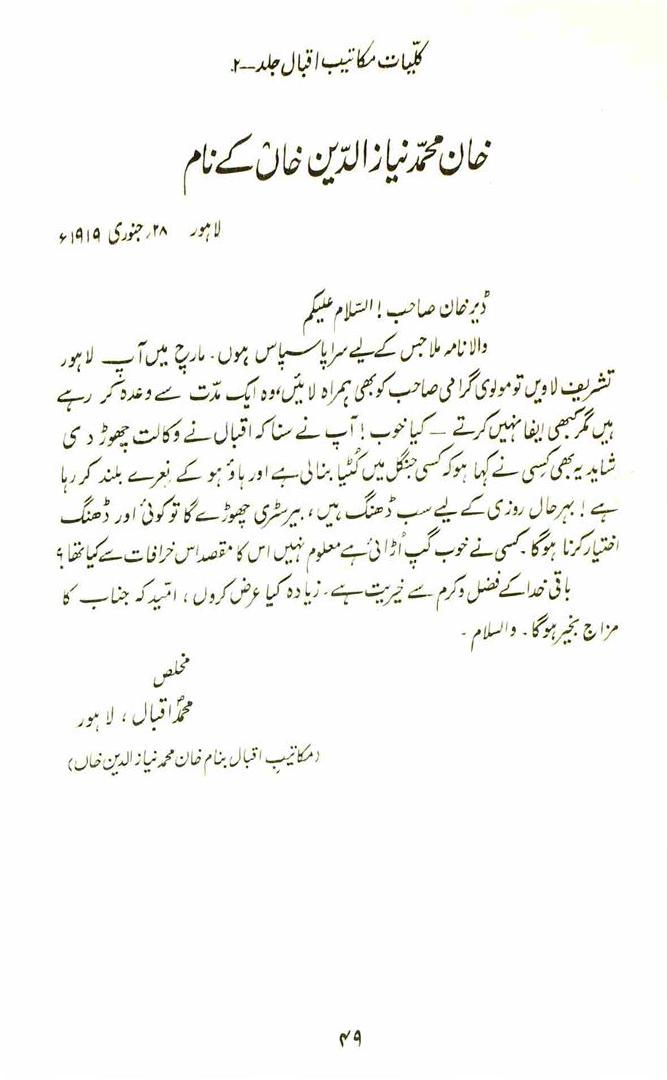 کلیّات مکاتیب اقبال جلد ۔ ۲
خان محمّد نیاز الدّین خاں کے نام
لاہور ۲۸؍ جنوری ۱۹۱۹ء
ڈیر خان صاحب ! السّلام علیکم
والا نامہ ملا جس کے لیے سراپا سپاس ہوں۔ مارچ میں آپ لاہور
تشریف لاویں تو مولوی گرامی صاحب کو بھی ہمراہ لائیں، وہ ایک مدّت سے وعدہ کر رہے
ہیں مگر کبھی ایفا نہیں کرتے ۔ کیا خوب ! آپ نے سنا کہ اقبال نے وکالت چھوڑ دی
شاید یہ بھی کِسی نے کہا ہو کہ کسی جنگل میں کُٹیا بنا لی ہے اور ہاؤ ہو کے نعرے بلند کر رہا
ہے ! بہرحال روزی کے لیے سب ڈھنگ ہیں ، بیرسٹری چھوڑے گا تو کوئی اور ڈھنگ
اختیار کرنا ہوگا۔ کسی نے خوب گپ اُڑائی ہے معلوم نہیں اس کا مقصد اس خرافات سے کیا تھا ؟
باقی خدا کے فضل و کرم سے خیریت ہے۔ زیادہ کیا عرض کروں ، امّید کہ جناب کا
مزاج بخیر ہوگا۔ والسلام ۔
مخلص
محمدؐ اقبال ، لاہور
(مکاتیبِ اقبال بنام خان محمد نیاز الدین خاں)
۴۹